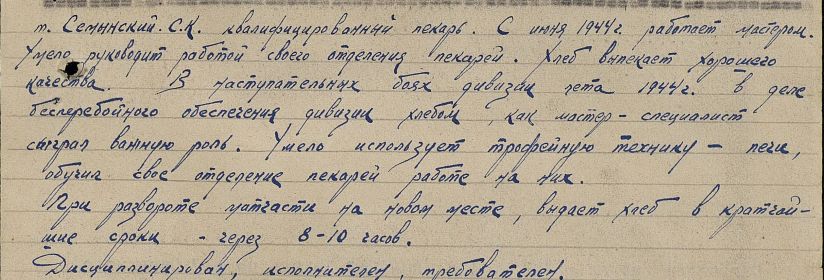 т. Семынский. С.К. квалифицированный пекарь. С июня 1944 г. работает мастером.
Умело руководит работой своего отделения пекарей. Хлеб выпекает хорошего
качества. В наступательных боях дивизии лета 1944 г. в деле
бесперебойного обеспечения дивизии хлебом, как мастер-специалист
сыграл важную роль. Умело использует трофейную технику - печи,
обучил свое отделение пекарей работе на них.
При развороте матчасти на новом месте, выдает хлеб в кратчай-
шие сроки - через 8-10 часов.
Дисциплинирован, исполнителен, требователен.